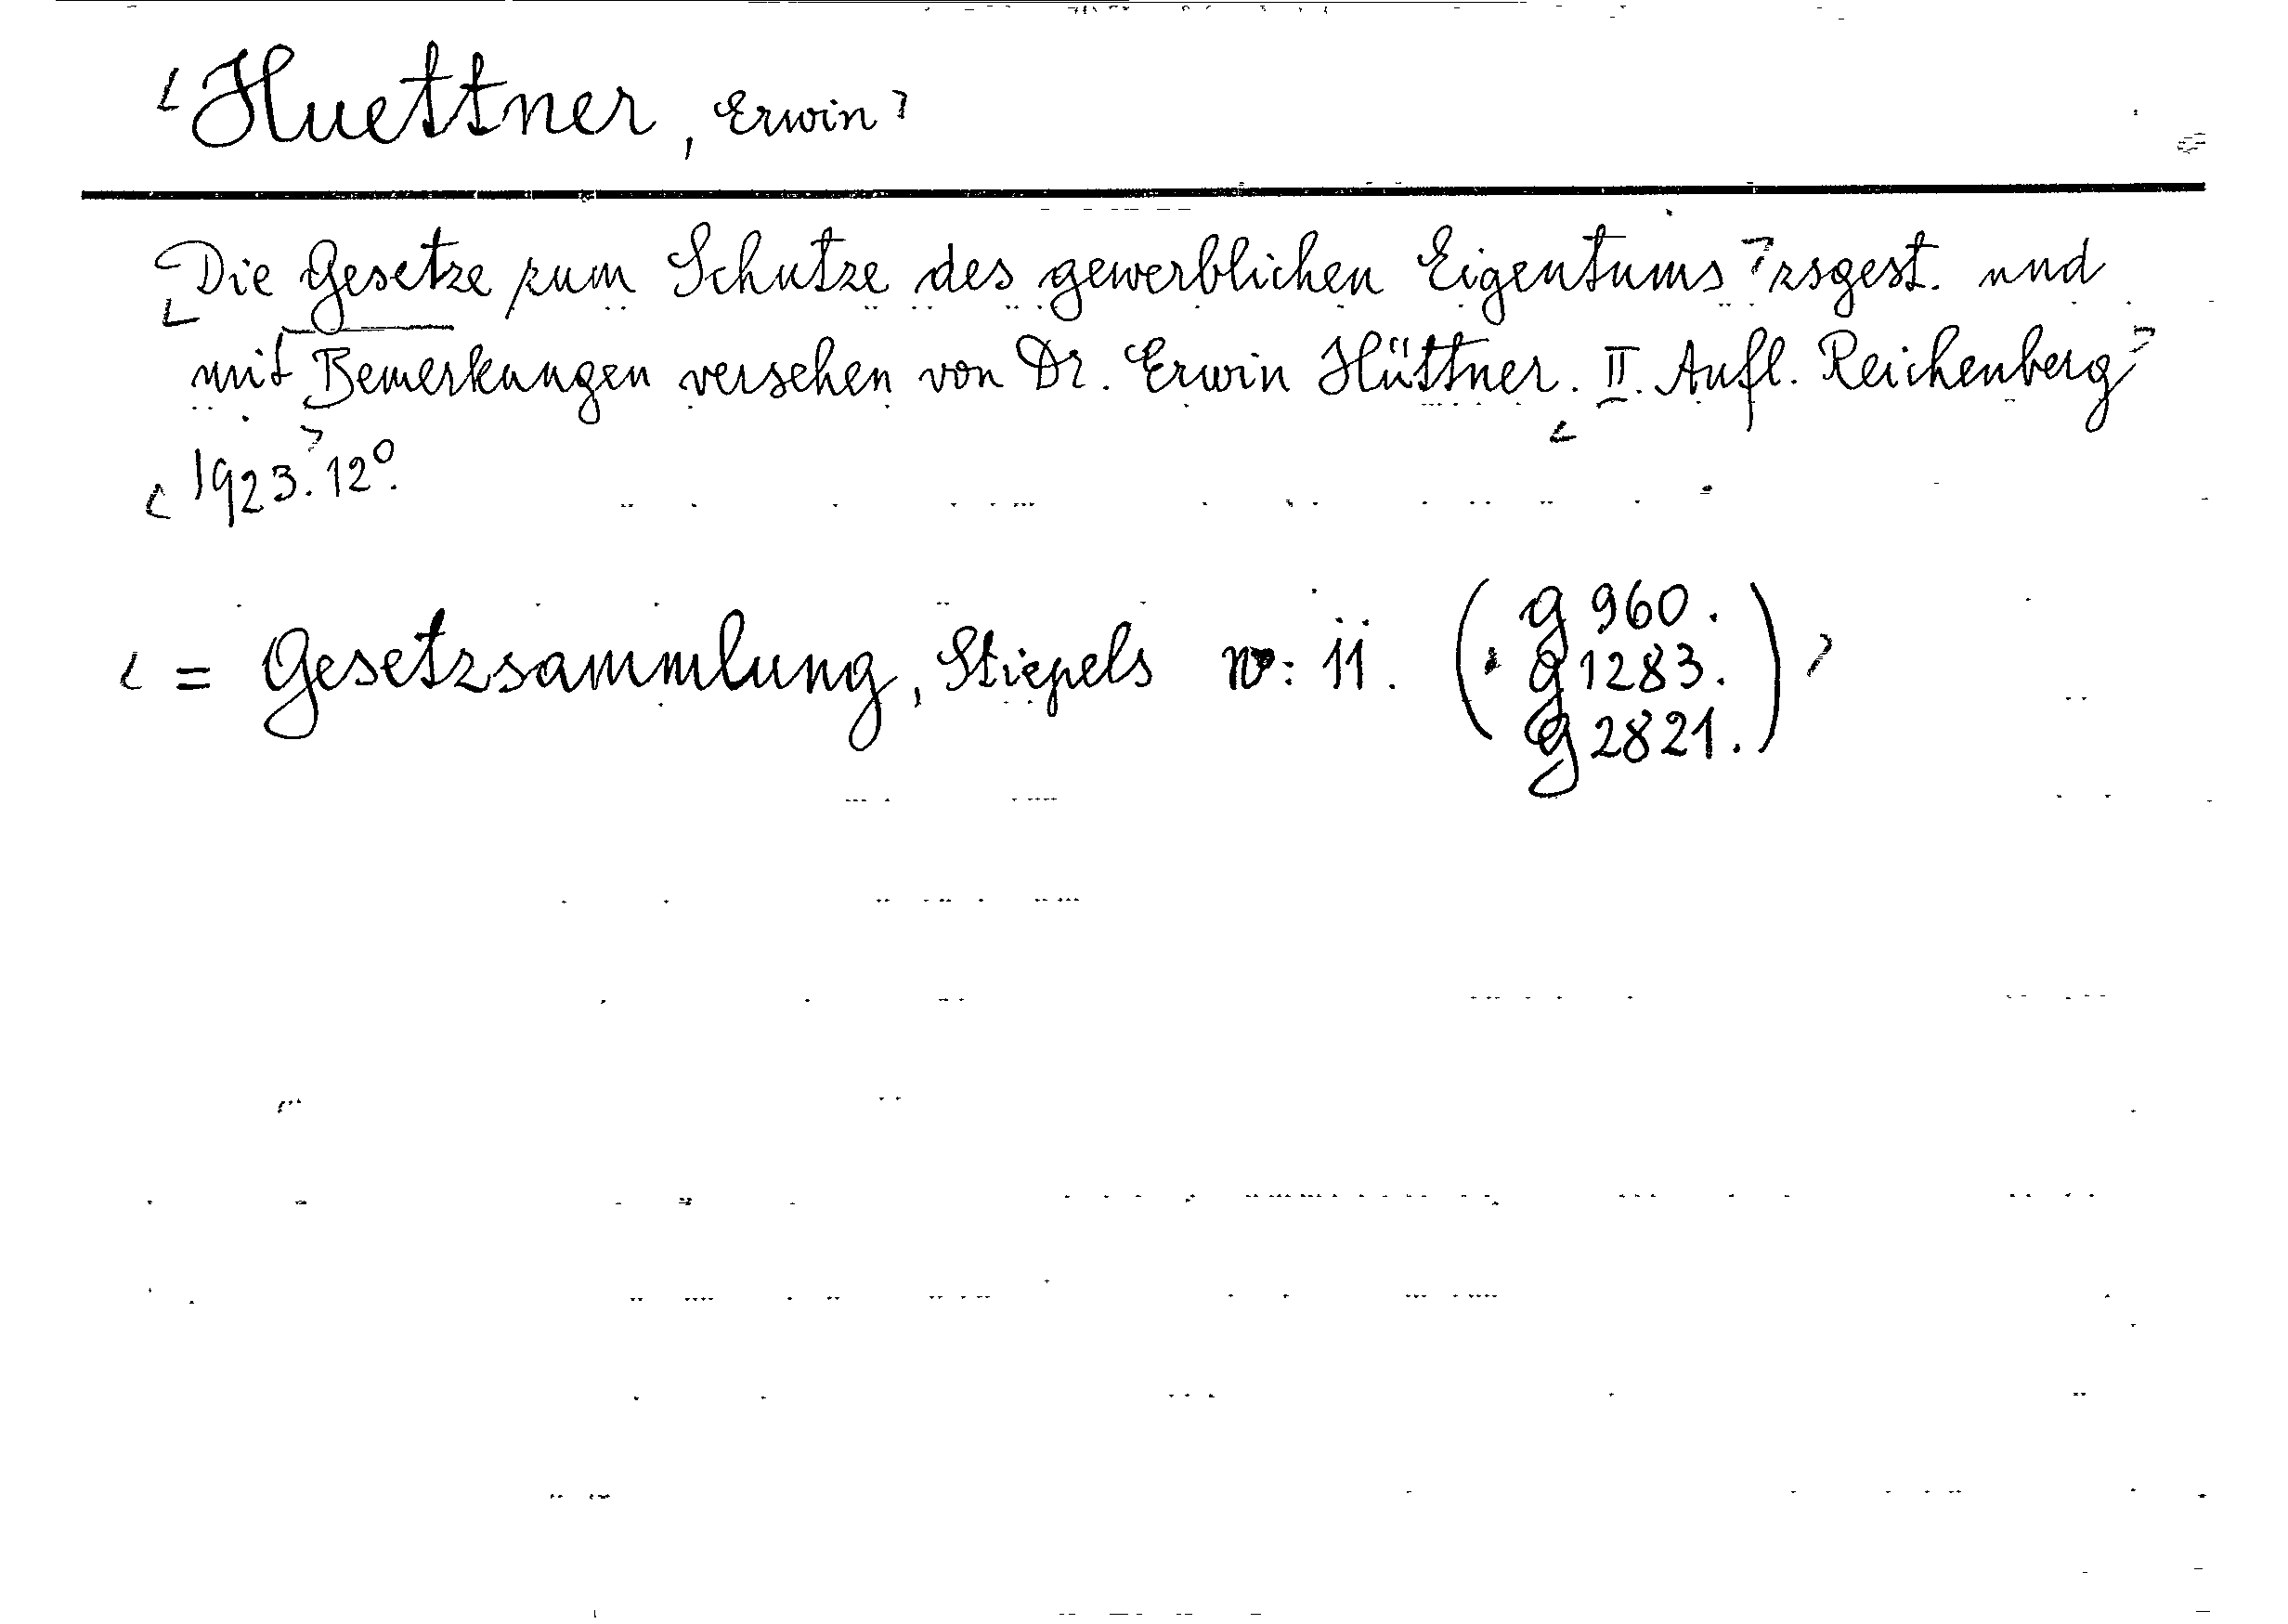 Huettner, Erwin
Die Gesetze zum Schutze des gewerblichen Eigentums zsgest. und
mit Bemerkungen versehen von Dr. Erwin Hüttner. II. Aufl. Reichenberg
1923. 12°.
= Gesetzsammlung, Stiepels no: 11. (g 960.
g 1283.
g 2821.)